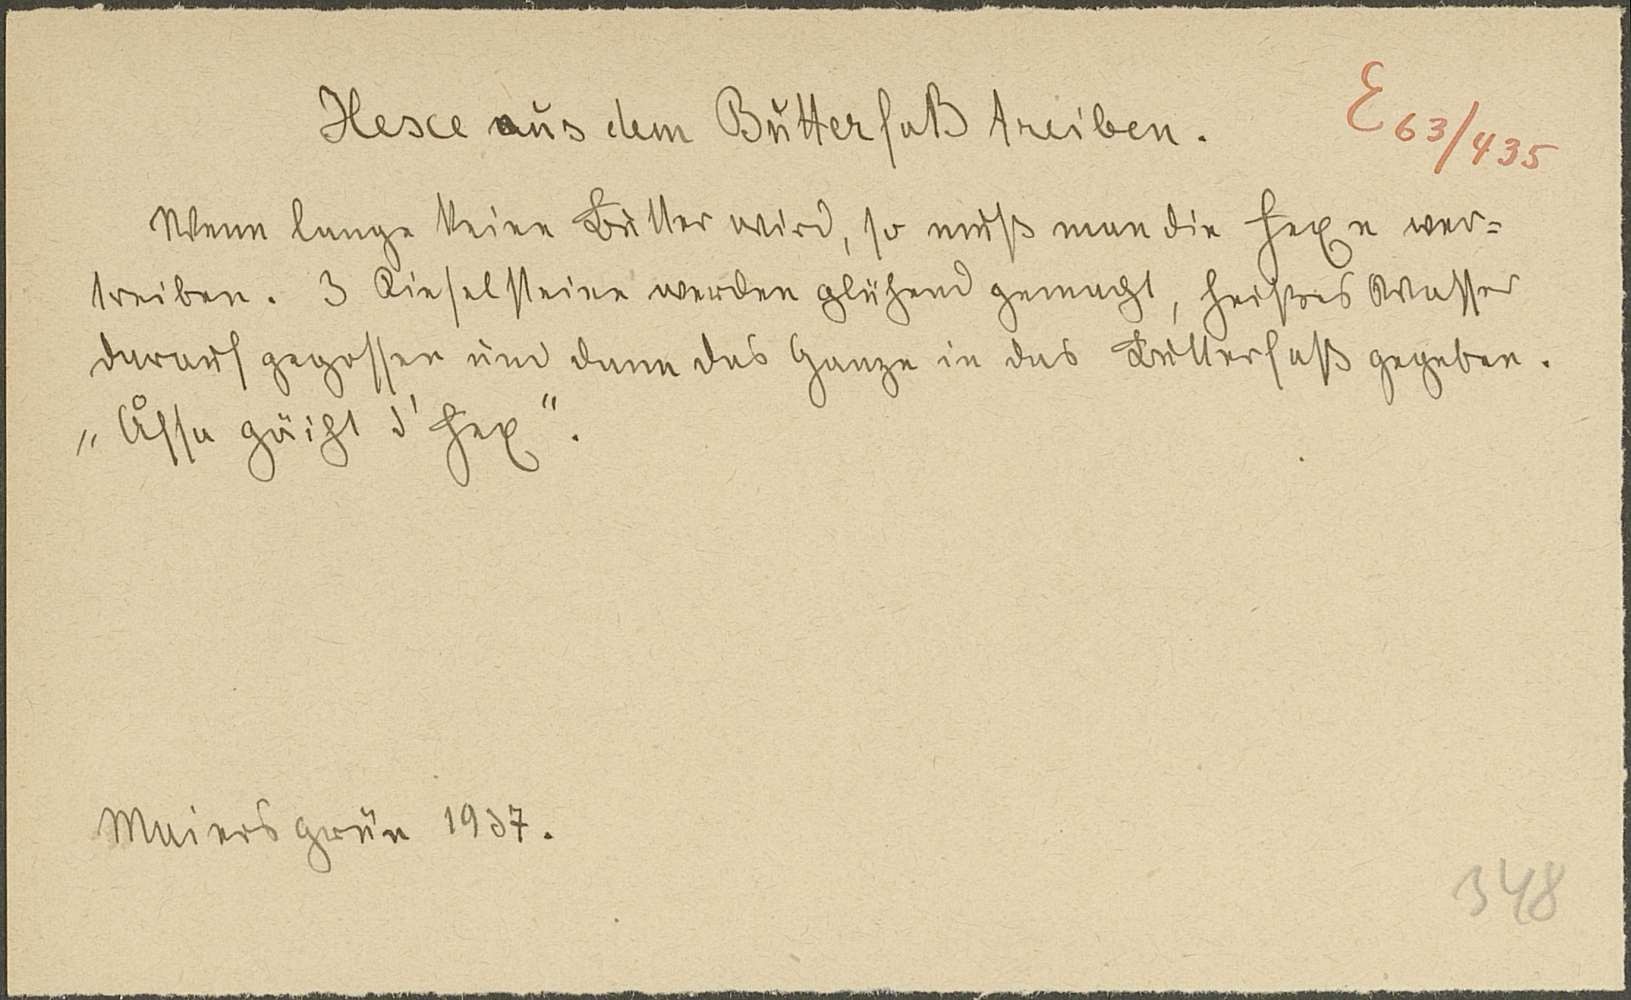 Hexe aus dem Butterfaß treiben.
E 63/435
Wenn lange keine Butter wird, so muß man die Hexe ver=
treiben. 3 Kieselsteine werden glühend gemacht, heißes Wasser
darauf gegossen und dann das Ganze in das Butterfaß gegeben.
„Åssa gäiht d' Hex“.
Maiersgrün 1937.
348